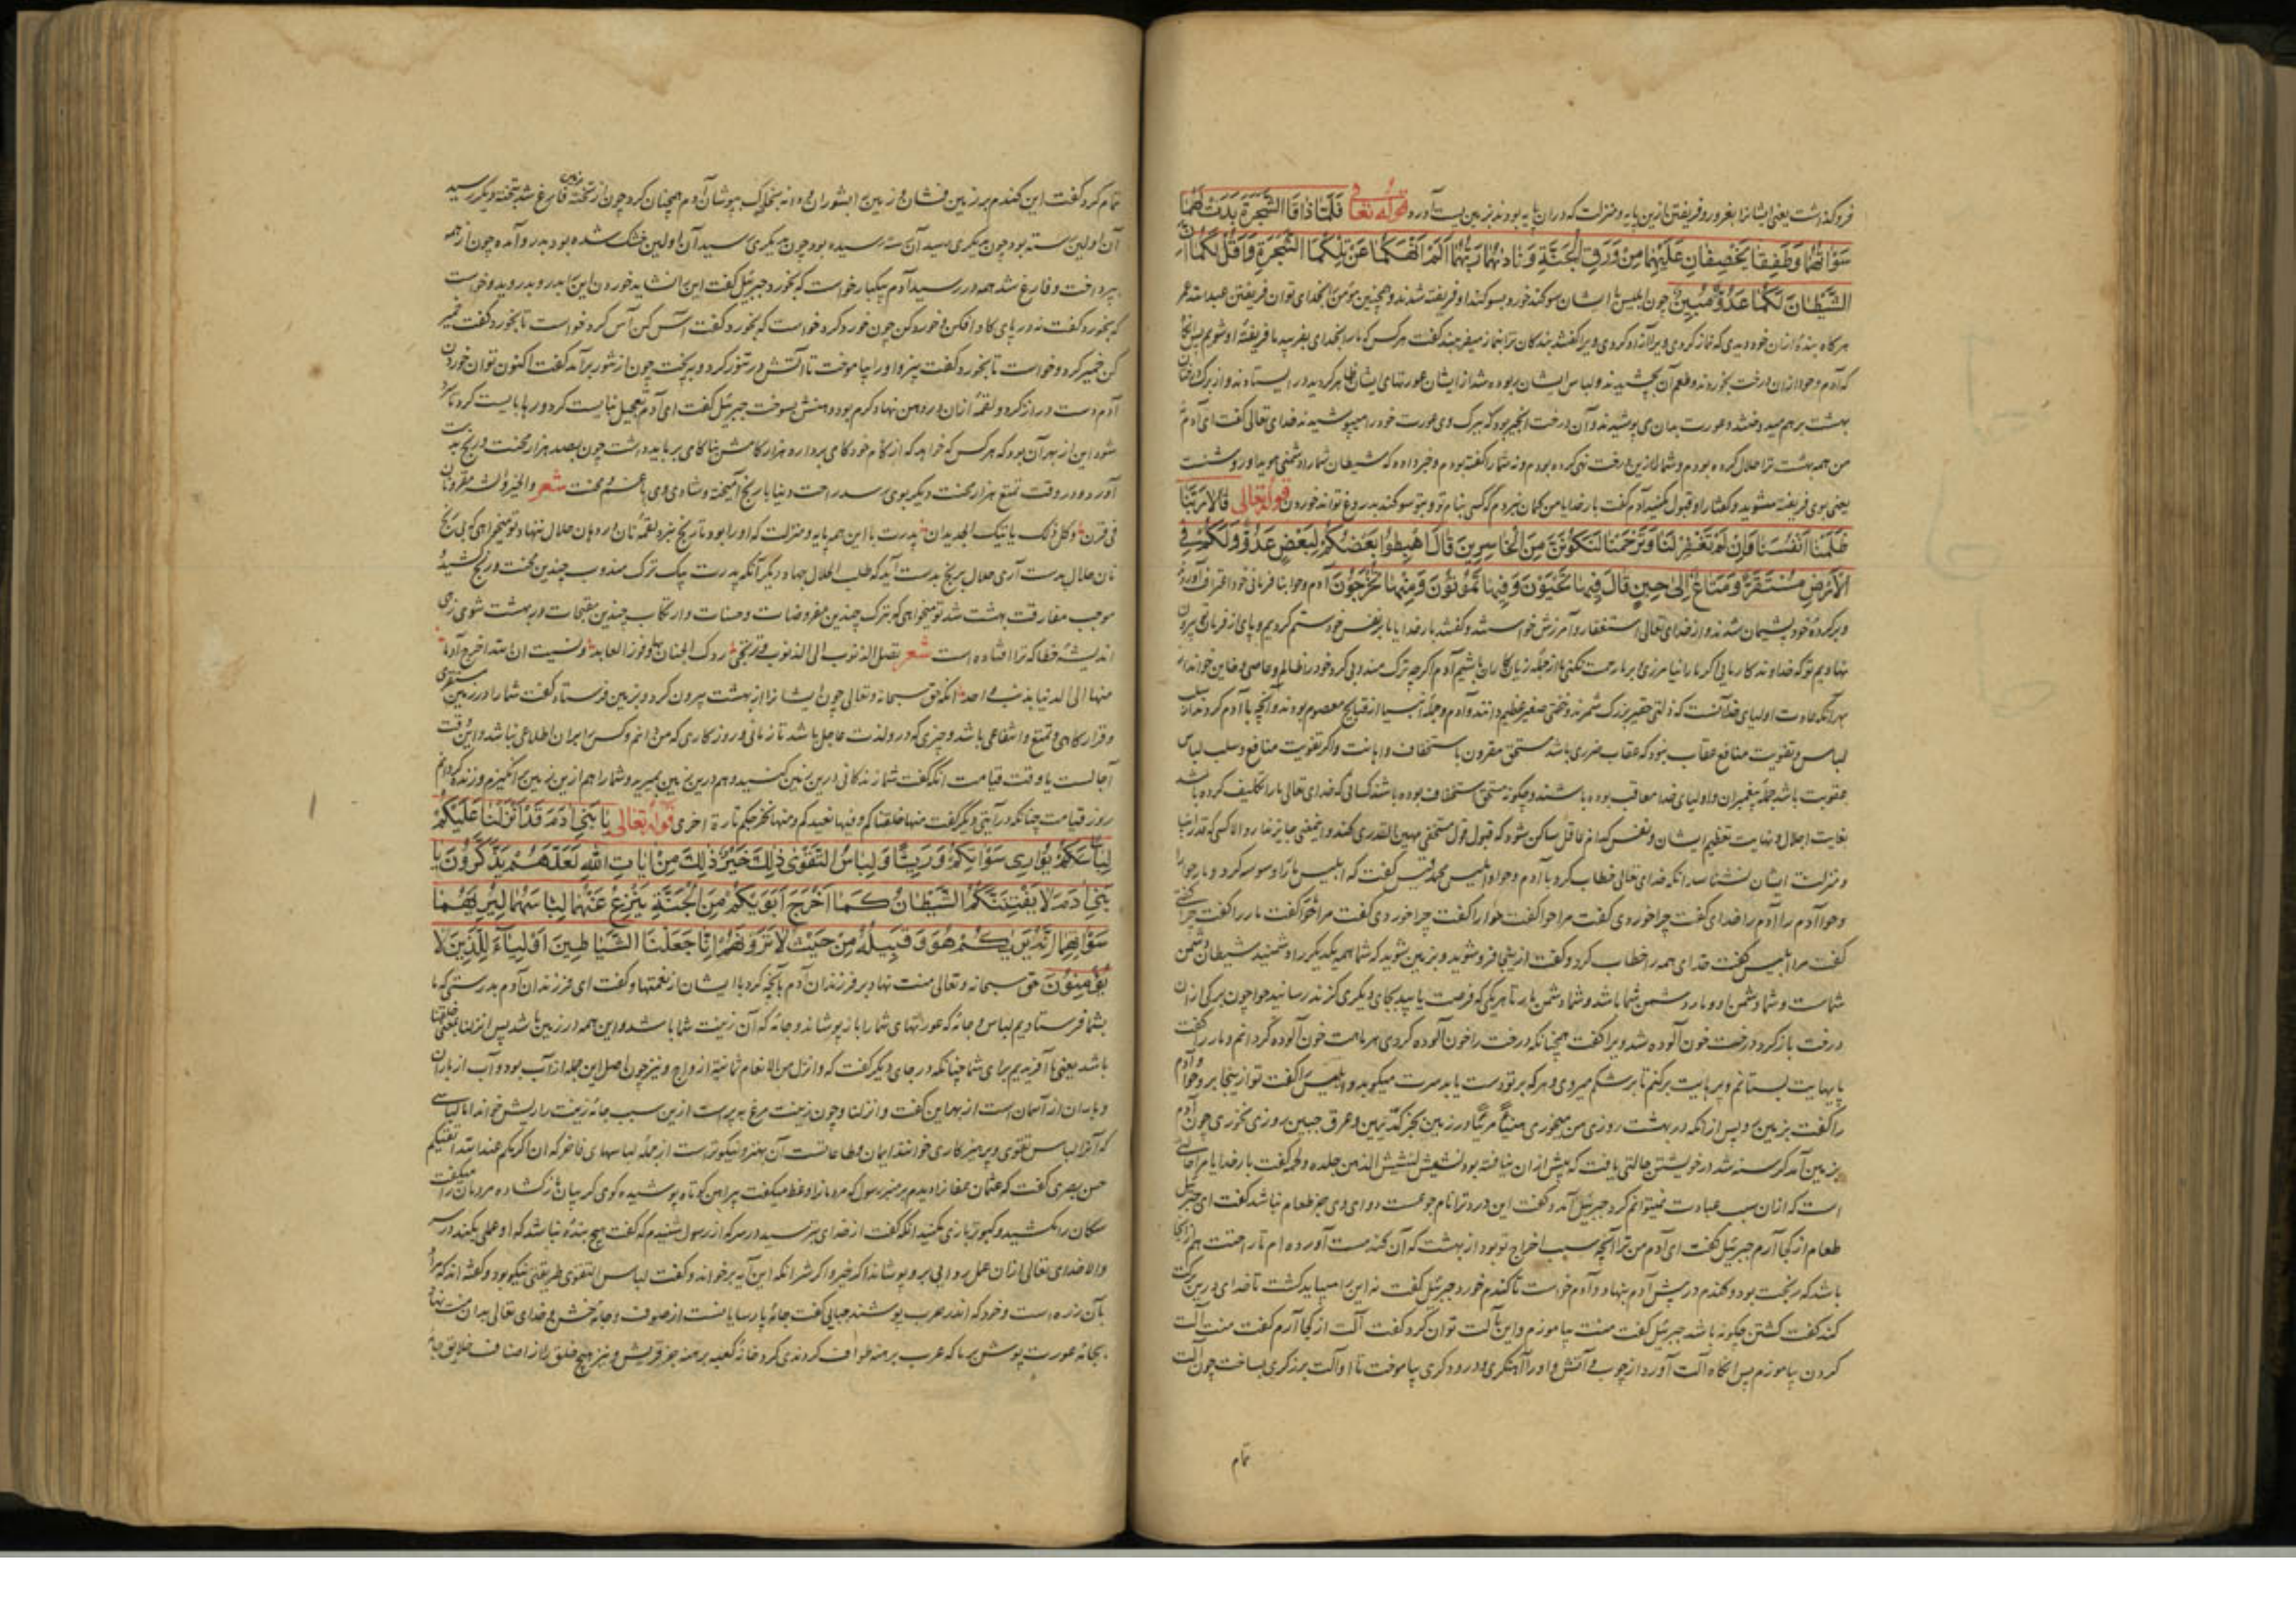 فروکذاشت یعنی ایشانرا بغرور و فریفتن ازین پایه و منزلت که دران پایه بودند بزمین پست آورد قوله تعالی فَلَمَّا ذَاقَا الشَّجَرَةَ بَدَتْ لَهُمَا
سَوْاٰتُهُمَا وَطَفِقَا يَخْصِفَانِ عَلَيْهِمَا مِنْ وَرَقِ الْجَنَّةِ وَنَادٰىهُمَا رَبُّهُمَا اَلَمْ اَنْهَكُمَا عَنْ تِلْكُمَا الشَّجَرَةِ وَاَقُلْ لَكُمَا اِنَّ
الشَّيْطَانَ لَكُمَا عَدُوٌّ مُبِينٌ چون ابلیس با ایشان سوکند خورد بسوکند او فریفته شدند و همچنین مومن بخدای توان فریفتن عبدالله عمر
هرکاه بنده ازان خود دیدی که نماز کردی ویرا آزاد کردی ویرا کفتند بندکان ترا بنماز میفریبند کفت هرکس که مارا بخدای بفریبد ما فریفته او شویم پس آنکاه
که آدم و حوا ازان درخت بخوردند و طعم آن بچشیدند و لباس ایشان ربوده شد از ایشان عورتهای ایشان ظاهر کردید در ایستادند و از برک درختان
بهشت برهم میدوختند و عورت بدان می پوشیدند و آن درخت انجیر بود که ببرک وی عورت خود را میپوشیدند خدای تعالی کفت ای آدم
من همه بهشت ترا حلال کرده بودم و شما را ازین درخت نهی کرده بودم و نه شما را کفته بودم و خبر داده که شیطان شما را دشمنی هویدا و روشنست
یعنی بوی فریفته مشوید و کفتار او قبول مکنید آدم کفت بار خدایا من کمان نبردم که کسی بنام تو و بتو سوکند بدروغ تواند خوردن قوله تعالی قَالَا رَبَّنَا
ظَلَمْنَا اَنْفُسَنَا وَاِنْ لَمْ تَغْفِرْ لَنَا وَتَرْحَمْنَا لَنَكُونَنَّ مِنَ الْخَاسِرِينَ قَالَ اهْبِطُوا بَعْضُكُمْ لِبَعْضٍ عَدُوٌّ وَلَكُمْ فِي
الْاَرْضِ مُسْتَقَرٌّ وَمَتَاعٌ اِلٰى حِينٍ قَالَ فِيهَا تَحْيَوْنَ وَفِيهَا تَمُوتُونَ وَمِنْهَا تُخْرَجُونَ آدم و حوا بنافرمانی خود اعتراف آوردند
وبر کرده خود پشیمان شدند و از خدای تعالی استغفار و آمرزش خواستند و کفتند بار خدایا ما بر نفس خود ستم کردیم و پای از فرمان تو بیرون
نهادیم تو که خداوند کار مایی اکر مارا نیامرزی و بر ما رحمت نکنی ما از جمله زیان کاران باشیم آدم اکرچه ترک مندوبی کرد خود را ظالم و عاصی و خاین خواند از
بهر آنکه عادت اولیای خدا آنست که ذلتی حقیر بزرک شمرند و خفتی صغیر عظیم دانند و آدم و جمله انبیا از قبایح معصوم بودند و آنچه با آدم کردند از سلب
لباس و تفویت منافع عقاب نبود که عقاب ضرری باشد مستحق مقرون با ستخفاف و اهانت و اکر تفویت منافع و سلب لباس
عقوبت باشد جمله پیغمبران و اولیای خدا معاقب بوده باشند و چکونه مستحق استخفاف بوده باشند کسانی که خدای تعالی مارا تکلیف کرده باشد
بغایت اجلال و نهایت تعظیم ایشان و نفس کدام عاقل ساکن شود که قبول قول مستخفی مهین القدری کند و این معنی جایز ندارد الا کسی که قدر انبیا
و منزلت ایشان نشناسد آنکه خدای تعالی خطاب کرد با آدم و حوا و ابلیس محمد قیس کفت که ابلیس مار را وسوسه کرد و مار حوا را
و حوا آدم را آدم را خدای کفت چرا خوردی کفت مرا حوا کفت حوا را کفت چرا خوردی کفت مرا مار کفت مار را کفت چرا کفتی
کفت مرا ابلیس کفت خدای همه را خطاب کرد و کفت ازینجا فروشوید و بزمین شوید که شما همه یکدیکر را دشمنید شیطان دشمن
شماست و شما دشمن او و مار دشمن شما باشد و شما دشمن مار تا هر یکی که فرصت یابید بجای دیکری کزند رسانید حوا چون برکی ازان
درخت باز کرد درخت خون آلوده شد ویرا کفت همچنانکه درخت را خون آلوده کردی هر ماهت خون آلوده کردانم و مار را کفت
پایهایت بستانم و پرهایت برکنم تا بر شکم میروی و هر که بر تو دست یابد سرت میکوبد و ابلیس را کفت تو ازینجا برو و آدم و حوا
را کفت بزمین رو پس ازانکه در بهشت روزی من میخوری هنیئا مریئا در زمین بجز کد یمین و عرق جبین روزی نخوری چون آدم
بزمین آمد کرسنه شد در خویشتن حالتی یافت که پیش ازان نیافته بود کفت بار خدایا مرا حالتی
است که ازان سبب عبادت نمیتوانم کرد جبرئیل آمد و کفت این درد ترا نام جوعست دوای وی جز طعام نباشد کفت ای جبرئیل
طعام از کجا آرم جبرئیل کفت ای آدم من ترا آنچه سبب اخراج تو بود از بهشت که آن کندمست آورده ام تا راحتت هم ازانجا
باشد که رنجت بود و کندم در پیش آدم بنهاد و آدم خواست تا کندم خورد جبرئیل کفت نه این را میباید کشت تا خدای درین برکت
کند کفت کشتن چکونه باشد جبرئیل کفت منت بیاموزم و این بآلت توان کرد کفت آلت از کجا آرم کفت منت آلت
کردن بیاموزم پس انکاه آلت آورد از چوب و آتش و او را آهنکری و درودکری بیاموخت تا او آلت برزکری بساخت چون آلت
تمام
تمام کرد کفت این کندم بر زمین فشان و زمین را بشوران و دانه بخاک بپوشان آدم همچنان کرد چون از تخته زمین فارغ شد بتخته دیکر رسید
آن اولین رسته بود چون بدیکری رسید آن رسیده بود چون بدیکری رسید آن اولین خشک شده بود بدرو آمده چون از همه
بپرداخت و فارغ شد همه در رسید آدم یکبار خواست که بخورد جبرئیل کفت این را نشاید خوردن این را بدرو بدروید و خواست
که بخورد کفت نه در پای کاو افکن و خورد کن چون خورد کرد خواست که بخورد کفت آس کن آس کرد خواست تا بخورد کفت خمیر
کن خمیر کرد و خواست تا بخورد کفت بپز و او را بیاموخت تا آتش در تنور کرد و بپخت چون از تنور برآمد کفت اکنون توان خوردن
آدم دست دراز کرد و لقمه ازان در دهن نهاد کرم بود دهنش بسوخت جبرئیل کفت ای آدم تعجیل نبایست کرد و رها بایست کرد تا سرد
شود این از بهر آن بود که هر کس که خواهد که از کام خود کامی بردارد هزار کامش بناکامی بر باید داشت چون بصد هزار محنت و رنج بدست
آورد و در وقت تمتع هزار محنت دیکر بوی رسد راحت دنیا با رنج آمیخته و شادی وی با غم و محنت شعر والخیر والشر مقرونان
فی قرن و کل ذلک یاتیک الجدیدان پدرت با این همه پایه و منزلت که او را بود تا رنج نبرد لقمه نان در دهان حلال ننهاد تو میخواهی که بی رنج
نان حلال بدست آری حلال برنج بدست آید که طلب الحلال جهاد دیکر آنکه پدرت بیک ترک مندوب چندین محنت و رنج کشید و
موجب مفارقت بهشت شد تو میخواهی که بترک چندین مفروضات و حسنات و ارتکاب چندین مقبحات در بهشت شوی زهی
اندیشه خطا که ترا افتاده است شعر تصل الذنوب الی الذنوب و ترتجی درک الجنان بها و فوز العابد و نسیت ان الله اخرج آدما
منها الی الدنیا بذنب واحد آنکه حق سبحانه و تعالی چون ایشانرا از بهشت بیرون کرد و بزمین فرستاد کفت شما را در زمین مستقری
و قرارکاهی و تمتع و انتفاعی باشد و چیزی که درو لذت عاجل باشد تا زمانی و روزکاری که من دانم و کس را بران اطلاعی نباشد و این وقت
آجالست یا وقت قیامت آنکه کفت شما زندکانی درین زمین کنید و هم درین زمین بمیرید و شما را هم ازین زمین برانکیزم و زنده کردانم
روز قیامت چنانکه در آیتی دیکر کفت منها خلقناکم و فیها نعیدکم و منها نخرجکم تارة اخری قوله تعالی يَا بَنِي اٰدَمَ قَدْ اَنْزَلْنَا عَلَيْكُمْ
لِبَاسًا يُوَارِي سَوْاٰتِكُمْ وَرِيشًا وَلِبَاسُ التَّقْوٰى ذٰلِكَ خَيْرٌ ذٰلِكَ مِنْ اٰيَاتِ اللّٰهِ لَعَلَّهُمْ يَذَّكَّرُونَ يَا
بَنِي اٰدَمَ لَا يَفْتِنَنَّكُمُ الشَّيْطَانُ كَمَا اَخْرَجَ اَبَوَيْكُمْ مِنَ الْجَنَّةِ يَنْزِعُ عَنْهُمَا لِبَاسَهُمَا لِيُرِيَهُمَا
سَوْاٰتِهِمَا اِنَّهُ يَرٰىكُمْ هُوَ وَقَبِيلُهُ مِنْ حَيْثُ لَا تَرَوْنَهُمْ اِنَّا جَعَلْنَا الشَّيَاطِينَ اَوْلِيَاءَ لِلَّذِينَ لَا
يُؤْمِنُونَ حق سبحانه و تعالی منت نهاد بر فرزندان آدم بآنچه کرد با ایشان از نعمتها و کفت ای فرزندان آدم بدرستی که ما
بشما فرستادیم لباس و جامه که عورتهای شما را باز پوشاند و جامه که آن زینت شما باشد و این همه در زمین باشد پس انزلنا بمعنی خلقنا
باشد یعنی ما آفریدیم برای شما چنانکه در جای دیکر کفت که و انزل من الانعام ثمانیة ازواج و نیز چون اصل این جمله از آب بود و آب از باران
و باران از آسمان است از بهر این کفت و انزلنا و چون زینت مرغ به پر است ازین سبب جامه زینت را ریش خواند اما لباسی
که آنرا لباس تقوی و پرهیزکاری خوانند ایمان و طاعاتست آن بهتر و نیکوترست از جمله لباسهای فاخر که ان اکرمکم عندالله اتقیکم
حسن بصری کفت که عثمان عفان را دیدم بر منبر رسول که مردمانرا وعظ میکفت پیراهن کوتاه پوشیده کوی کریبان باز کشاده مردمان را میکفت
سکان را بکشید و کبوتر بازی مکنید آنکه کفت از خدای بترسید در سر که از رسول شنیدم که کفت هیچ بنده نباشد که او عملی بکند در سر
والا خدای تعالی ازان عمل ردایی برو پوشاند اکر خیر و اکر شر آنکه این آیه برخواند و کفت لباس التقوی طریقتی نیکو بود و کفته اند که مراد
بآن زره است و خود که اندر حرب پوشند جبایی کفت جامه پارسایانست از صوف و جامه خشن و خدای تعالی بدان منت نهاد
بجامه عورت پوش برما که عرب برهنه طواف کردندی کرد خانه کعبه برهنه جز قریش و نیز هیچ خلق را از اصناف خلایق جامه